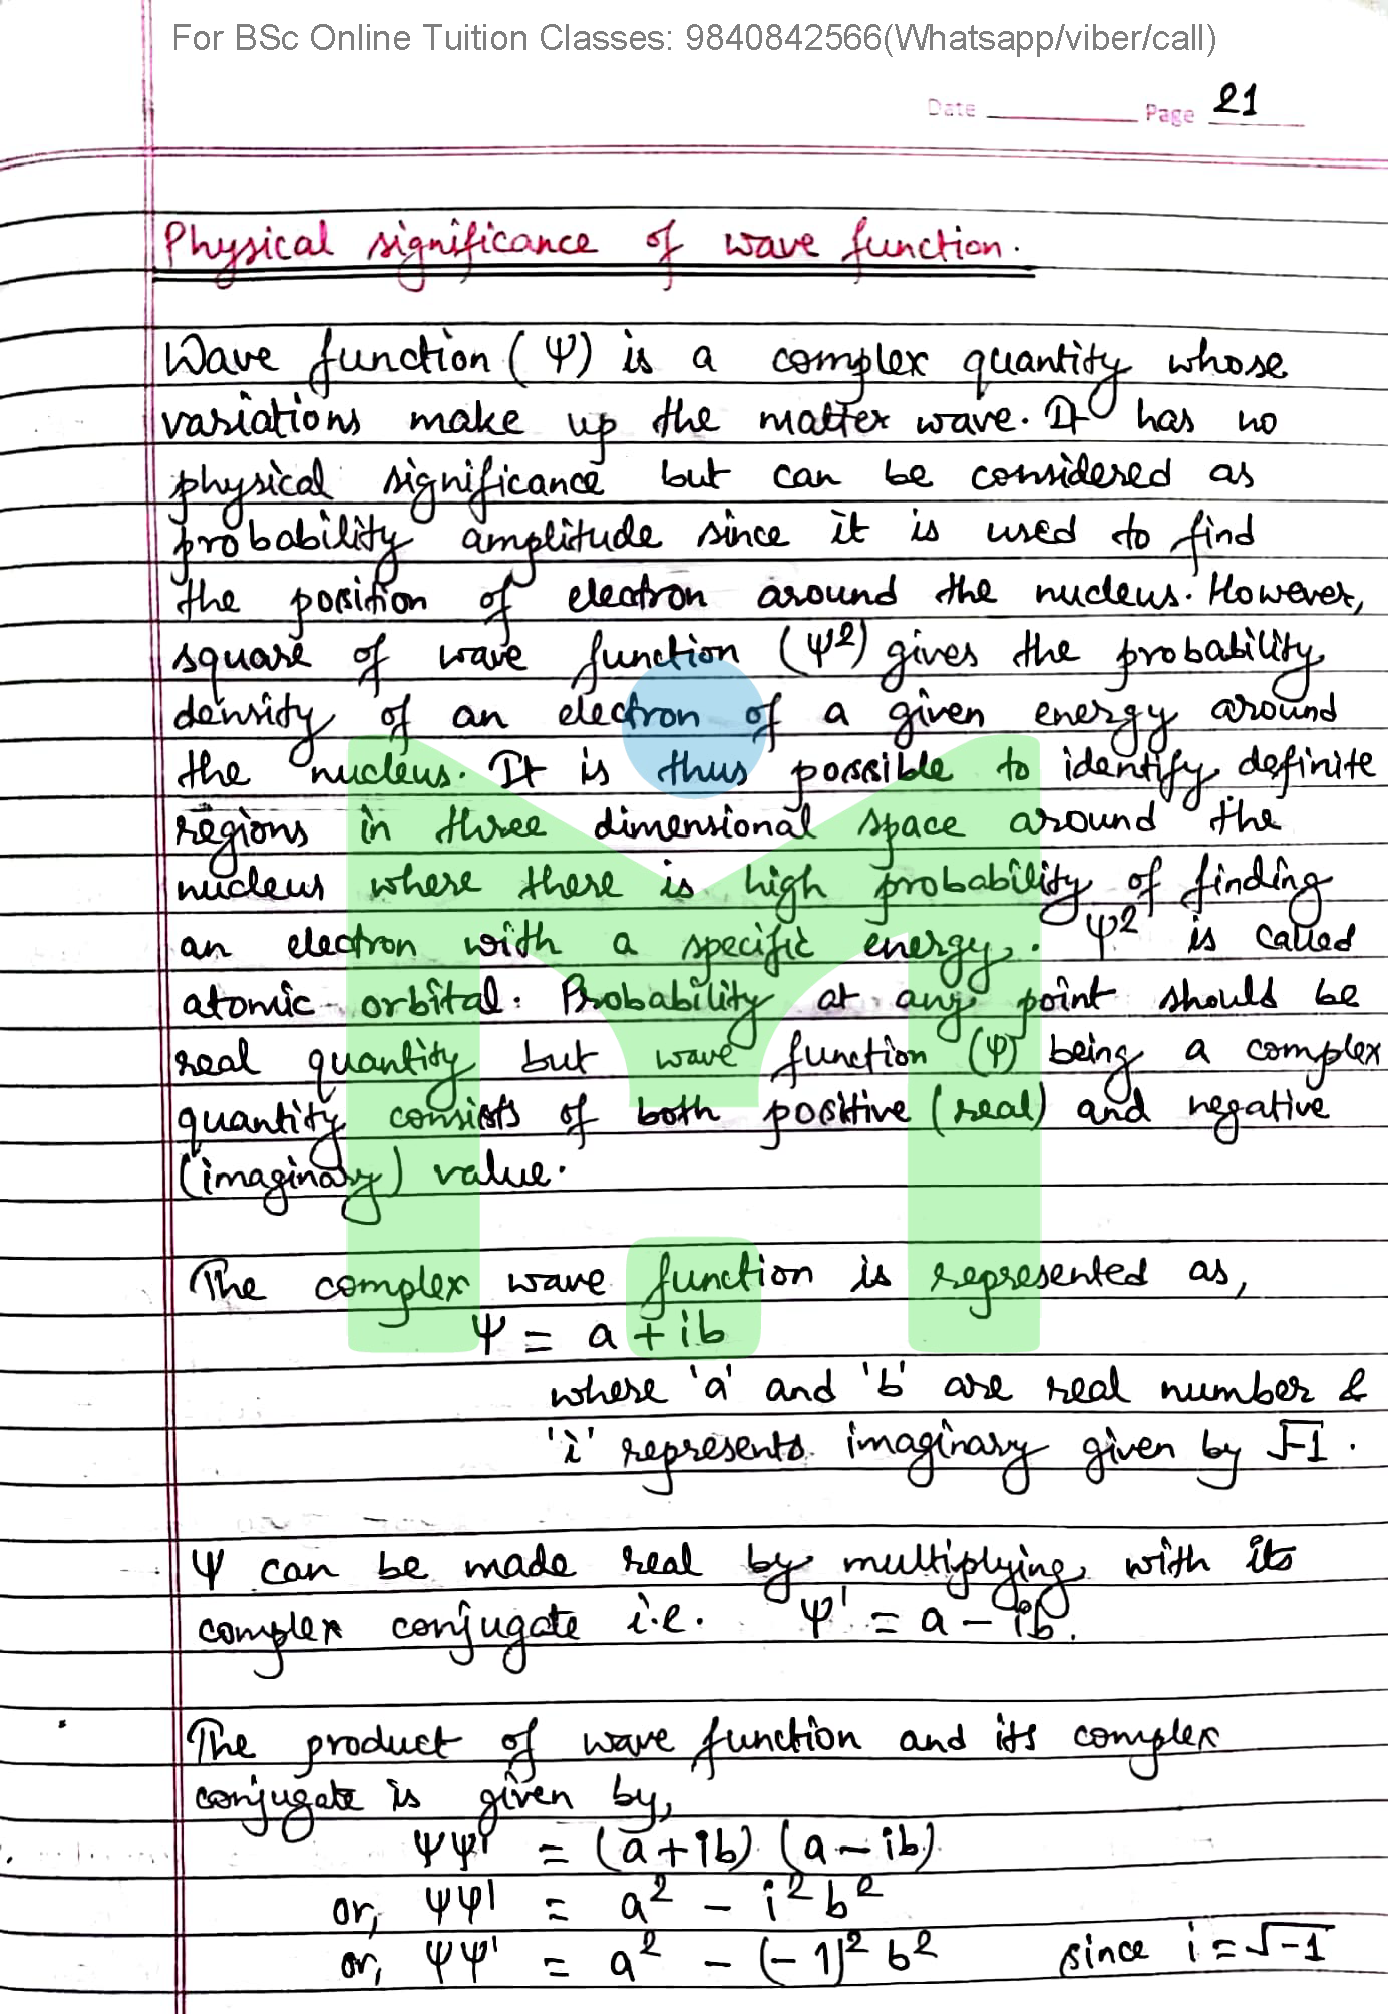 For BSc Online Tuition Classes: 9840842566(Whatsapp/viber/call)
Date Page 21
Physical significance of wave function.
Wave function (Ψ) is a complex quantity whose
variations make up the matter wave. It has no
physical significance but can be considered as
probability amplitude since it is used to find
the position of electron around the nucleus. However,
square of wave function (Ψ²) gives the probability
density of an electron of a given energy around
the nucleus. It is thus possible to identify definite
regions in three dimensional space around the
nucleus where there is high probability of finding
an electron with a specific energy. Ψ² is called
atomic orbital. Probability at any point should be
real quantity but wave function (Ψ) being a complex
quantity consists of both positive (real) and negative
(imaginary) value.
The complex wave function is represented as,
Ψ = a + ib
where 'a' and 'b' are real number &
'i' represents imaginary given by √-1.
Ψ can be made real by multiplying with its
complex conjugate i.e. Ψ' = a - ib.
The product of wave function and its complex
conjugate is given by,
ΨΨ' = (a+ib) (a-ib)
or, ΨΨ' = a² - i²b²
or, ΨΨ' = a² - (-1)² b² since i = √-1